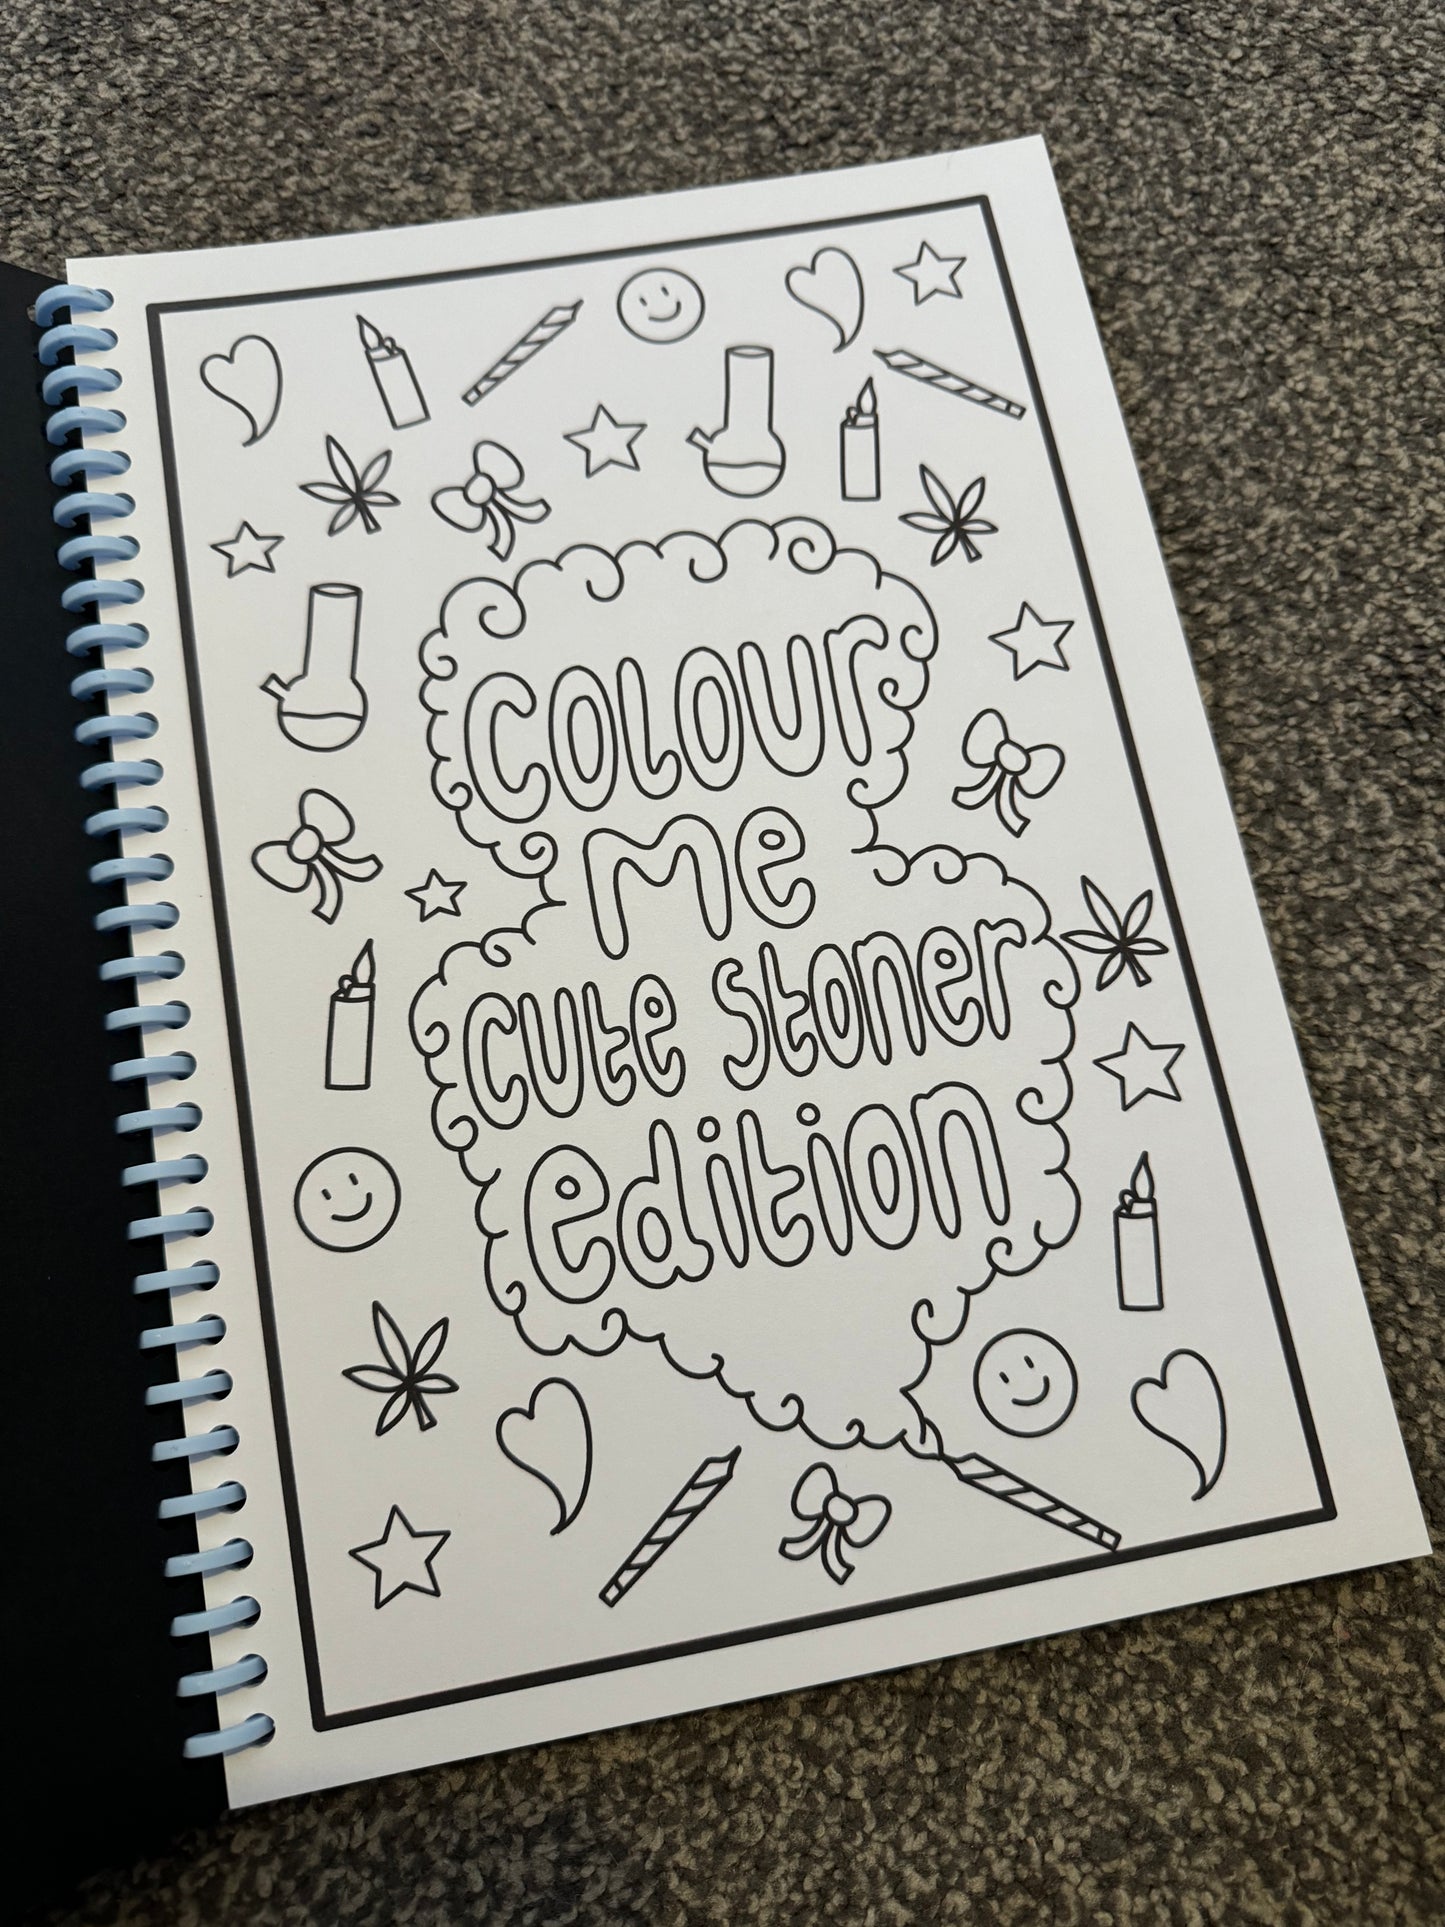 Colour
me
cute stoner
edition